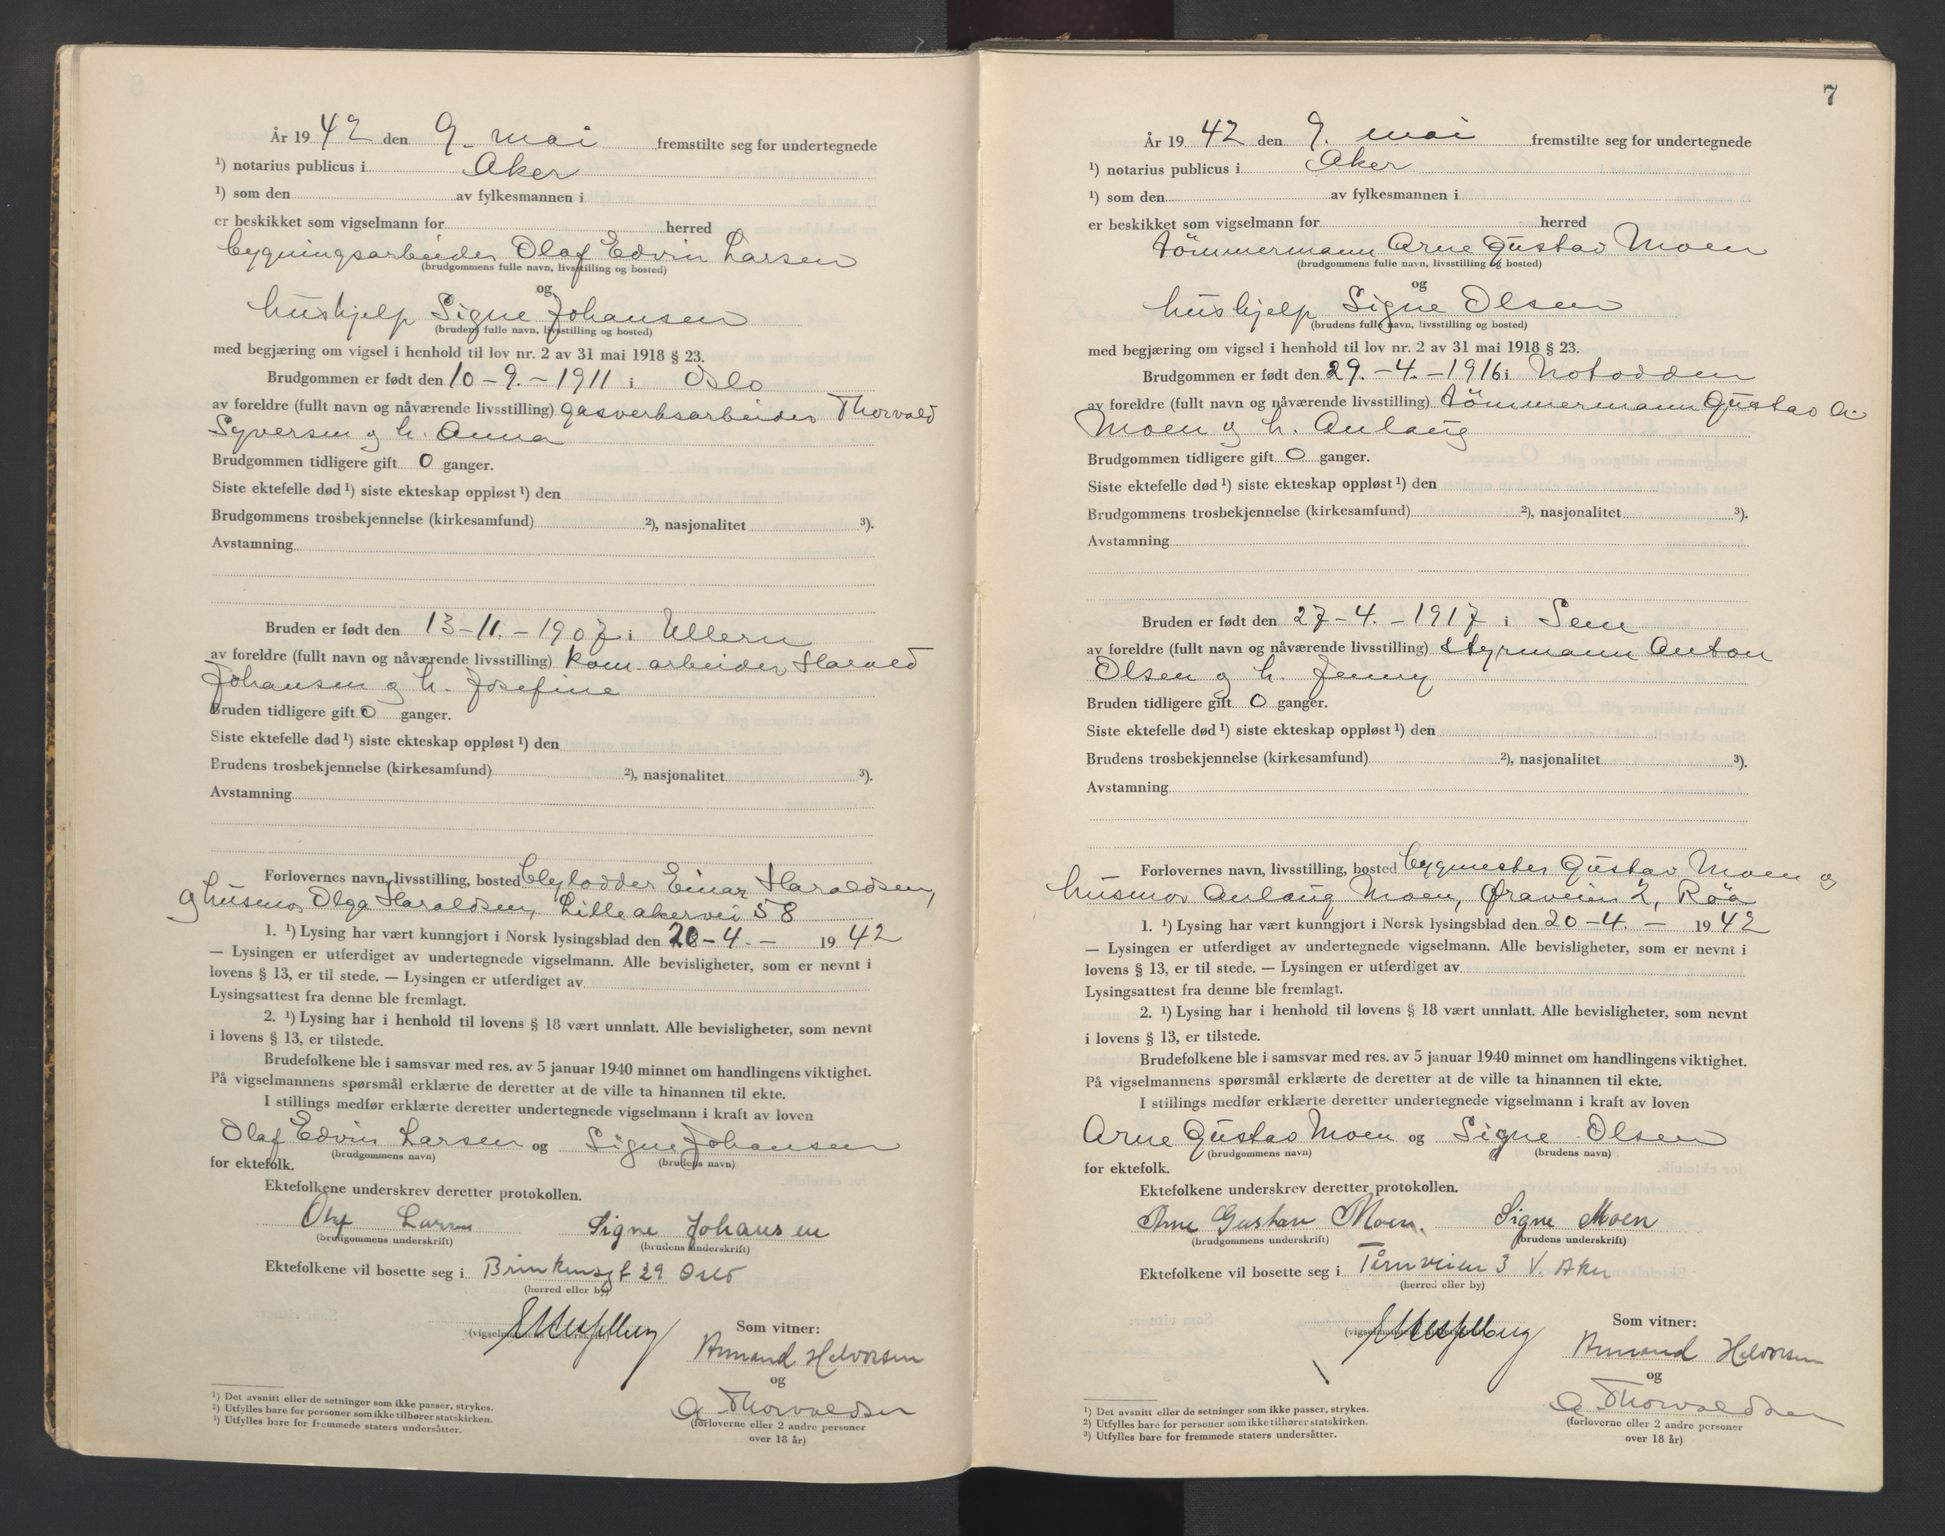 År 1942 den 9. mai fremstilte seg for undertegnede
¹) notarius publicus i Aker
¹) som den av fylkesmannen i
er beskikket som vigselmann for herred
bygningsarbeider Olaf Edvin Larsen
(brudgommens fulle navn, livsstilling og bosted)
og
hushjelp Signe Johansen
(brudens fulle navn, livsstilling og bosted)
med begjæring om vigsel i henhold til lov nr. 2 av 31 mai 1918 § 23.
Brudgommen er født den 10-9.-1911 i Oslo
av foreldre (fullt navn og nåværende livsstilling) gasverksarbeider Thorvald
Syversen og h. Anna
Brudgommen tidligere gift 0 ganger.
Siste ektefelle død¹) siste ekteskap oppløst¹) den
Brudgommens trosbekjennelse (kirkesamfund) ²), nasjonalitet ³).
Avstamning
Bruden er født den 13-11.-1907 i Ullern
av foreldre (fullt navn og nåværende livsstilling) kom. arbeider Harald
Johansen og h. Josefine
Bruden tidligere gift 0 ganger.
Siste ektefelle død¹) siste ekteskap oppløst¹) den
Brudens trosbekjennelse (kirkesamfund) ²), nasjonalitet ³).
Avstamning
Forlovernes navn, livsstilling, bosted blylodder Einar Haraldsen,
og husmor Olga Haraldsen, Lilleakervei 58
1. ¹) Lysing har vært kunngjort i Norsk lysingsblad den 20-4.- 1942
— Lysingen er utferdiget av undertegnede vigselmann. Alle bevisligheter, som er nevnt i
lovens § 13, er til stede. — Lysingen er utferdiget av
Lysingsattest fra denne ble fremlagt.
2. ¹) Lysing har i henhold til lovens § 18 vært unnlatt. Alle bevisligheter, som nevnt
i lovens § 13, er tilstede.
Brudefolkene ble i samsvar med res. av 5 januar 1940 minnet om handlingens viktighet.
På vigselmannens spørsmål erklærte de deretter at de ville ta hinannen til ekte.
I stillings medfør erklærte deretter undertegnede vigselmann i kraft av loven
Olaf Edvin Larsen og Signe Johansen
(brudgommens navn) (brudens navn)
for ektefolk.
Ektefolkene underskrev deretter protokollen.
Olaf Larsen Signe Johansen
(brudgommens underskrift) (brudens underskrift)
Ektefolkene vil bosette seg i Brinkensgt 29 Oslo
(herred eller by)
Som vitner:
Armand Halvorsen
og
A Thorvaldsen
(forloverne eller 2 andre personer
over 18 år)
¹) Det avsnitt eller de setninger som ikke passer, strykes.
²) Utfylles bare for personer som ikke tilhører statskirken.
³) Utfylles bare for fremmede staters undersåtter.
7
År 1942 den 9. mai fremstilte seg for undertegnede
¹) notarius publicus i Aker
¹) som den av fylkesmannen i
er beskikket som vigselmann for herred
tömmermann Arne Gustav Moen
(brudgommens fulle navn, livsstilling og bosted)
og
hushjelp Signe Olsen
(brudens fulle navn, livsstilling og bosted)
med begjæring om vigsel i henhold til lov nr. 2 av 31 mai 1918 § 23.
Brudgommen er født den 29.-4.-1916 i Notodden
av foreldre (fullt navn og nåværende livsstilling) tömmermann Gustav A.
Moen og h. Anlaug
Brudgommen tidligere gift 0 ganger.
Siste ektefelle død¹) siste ekteskap oppløst¹) den
Brudgommens trosbekjennelse (kirkesamfund) ²), nasjonalitet ³).
Avstamning
Bruden er født den 27-4.-1917 i Sem
av foreldre (fullt navn og nåværende livsstilling) styrmann Anton
Olsen og h. Jenny
Bruden tidligere gift 0 ganger.
Siste ektefelle død¹) siste ekteskap oppløst¹) den
Brudens trosbekjennelse (kirkesamfund) ²), nasjonalitet ³).
Avstamning
Forlovernes navn, livsstilling, bosted bygmester Gustav Moen og
husmor Anlaug Moen, Øraveien 2, Röa
1. ¹) Lysing har vært kunngjort i Norsk lysingsblad den 20-4.- 1942
— Lysingen er utferdiget av undertegnede vigselmann. Alle bevisligheter, som er nevnt i
lovens § 13, er til stede. — Lysingen er utferdiget av
Lysingsattest fra denne ble fremlagt.
2. ¹) Lysing har i henhold til lovens § 18 vært unnlatt. Alle bevisligheter, som nevnt
i lovens § 13, er tilstede.
Brudefolkene ble i samsvar med res. av 5 januar 1940 minnet om handlingens viktighet.
På vigselmannens spørsmål erklærte de deretter at de ville ta hinannen til ekte.
I stillings medfør erklærte deretter undertegnede vigselmann i kraft av loven
Arne Gustav Moen og Signe Olsen
(brudgommens navn) (brudens navn)
for ektefolk.
Ektefolkene underskrev deretter protokollen.
Arne Gustav Moen. Signe Moen
(brudgommens underskrift) (brudens underskrift)
Ektefolkene vil bosette seg i Tårnveien 3 V. Aker
(herred eller by)
Som vitner:
Armand Halvorsen
og
A Thorvaldsen
(forloverne eller 2 andre personer
over 18 år)
¹) Det avsnitt eller de setninger som ikke passer, strykes.
²) Utfylles bare for personer som ikke tilhører statskirken.
³) Utfylles bare for fremmede staters undersåtter.